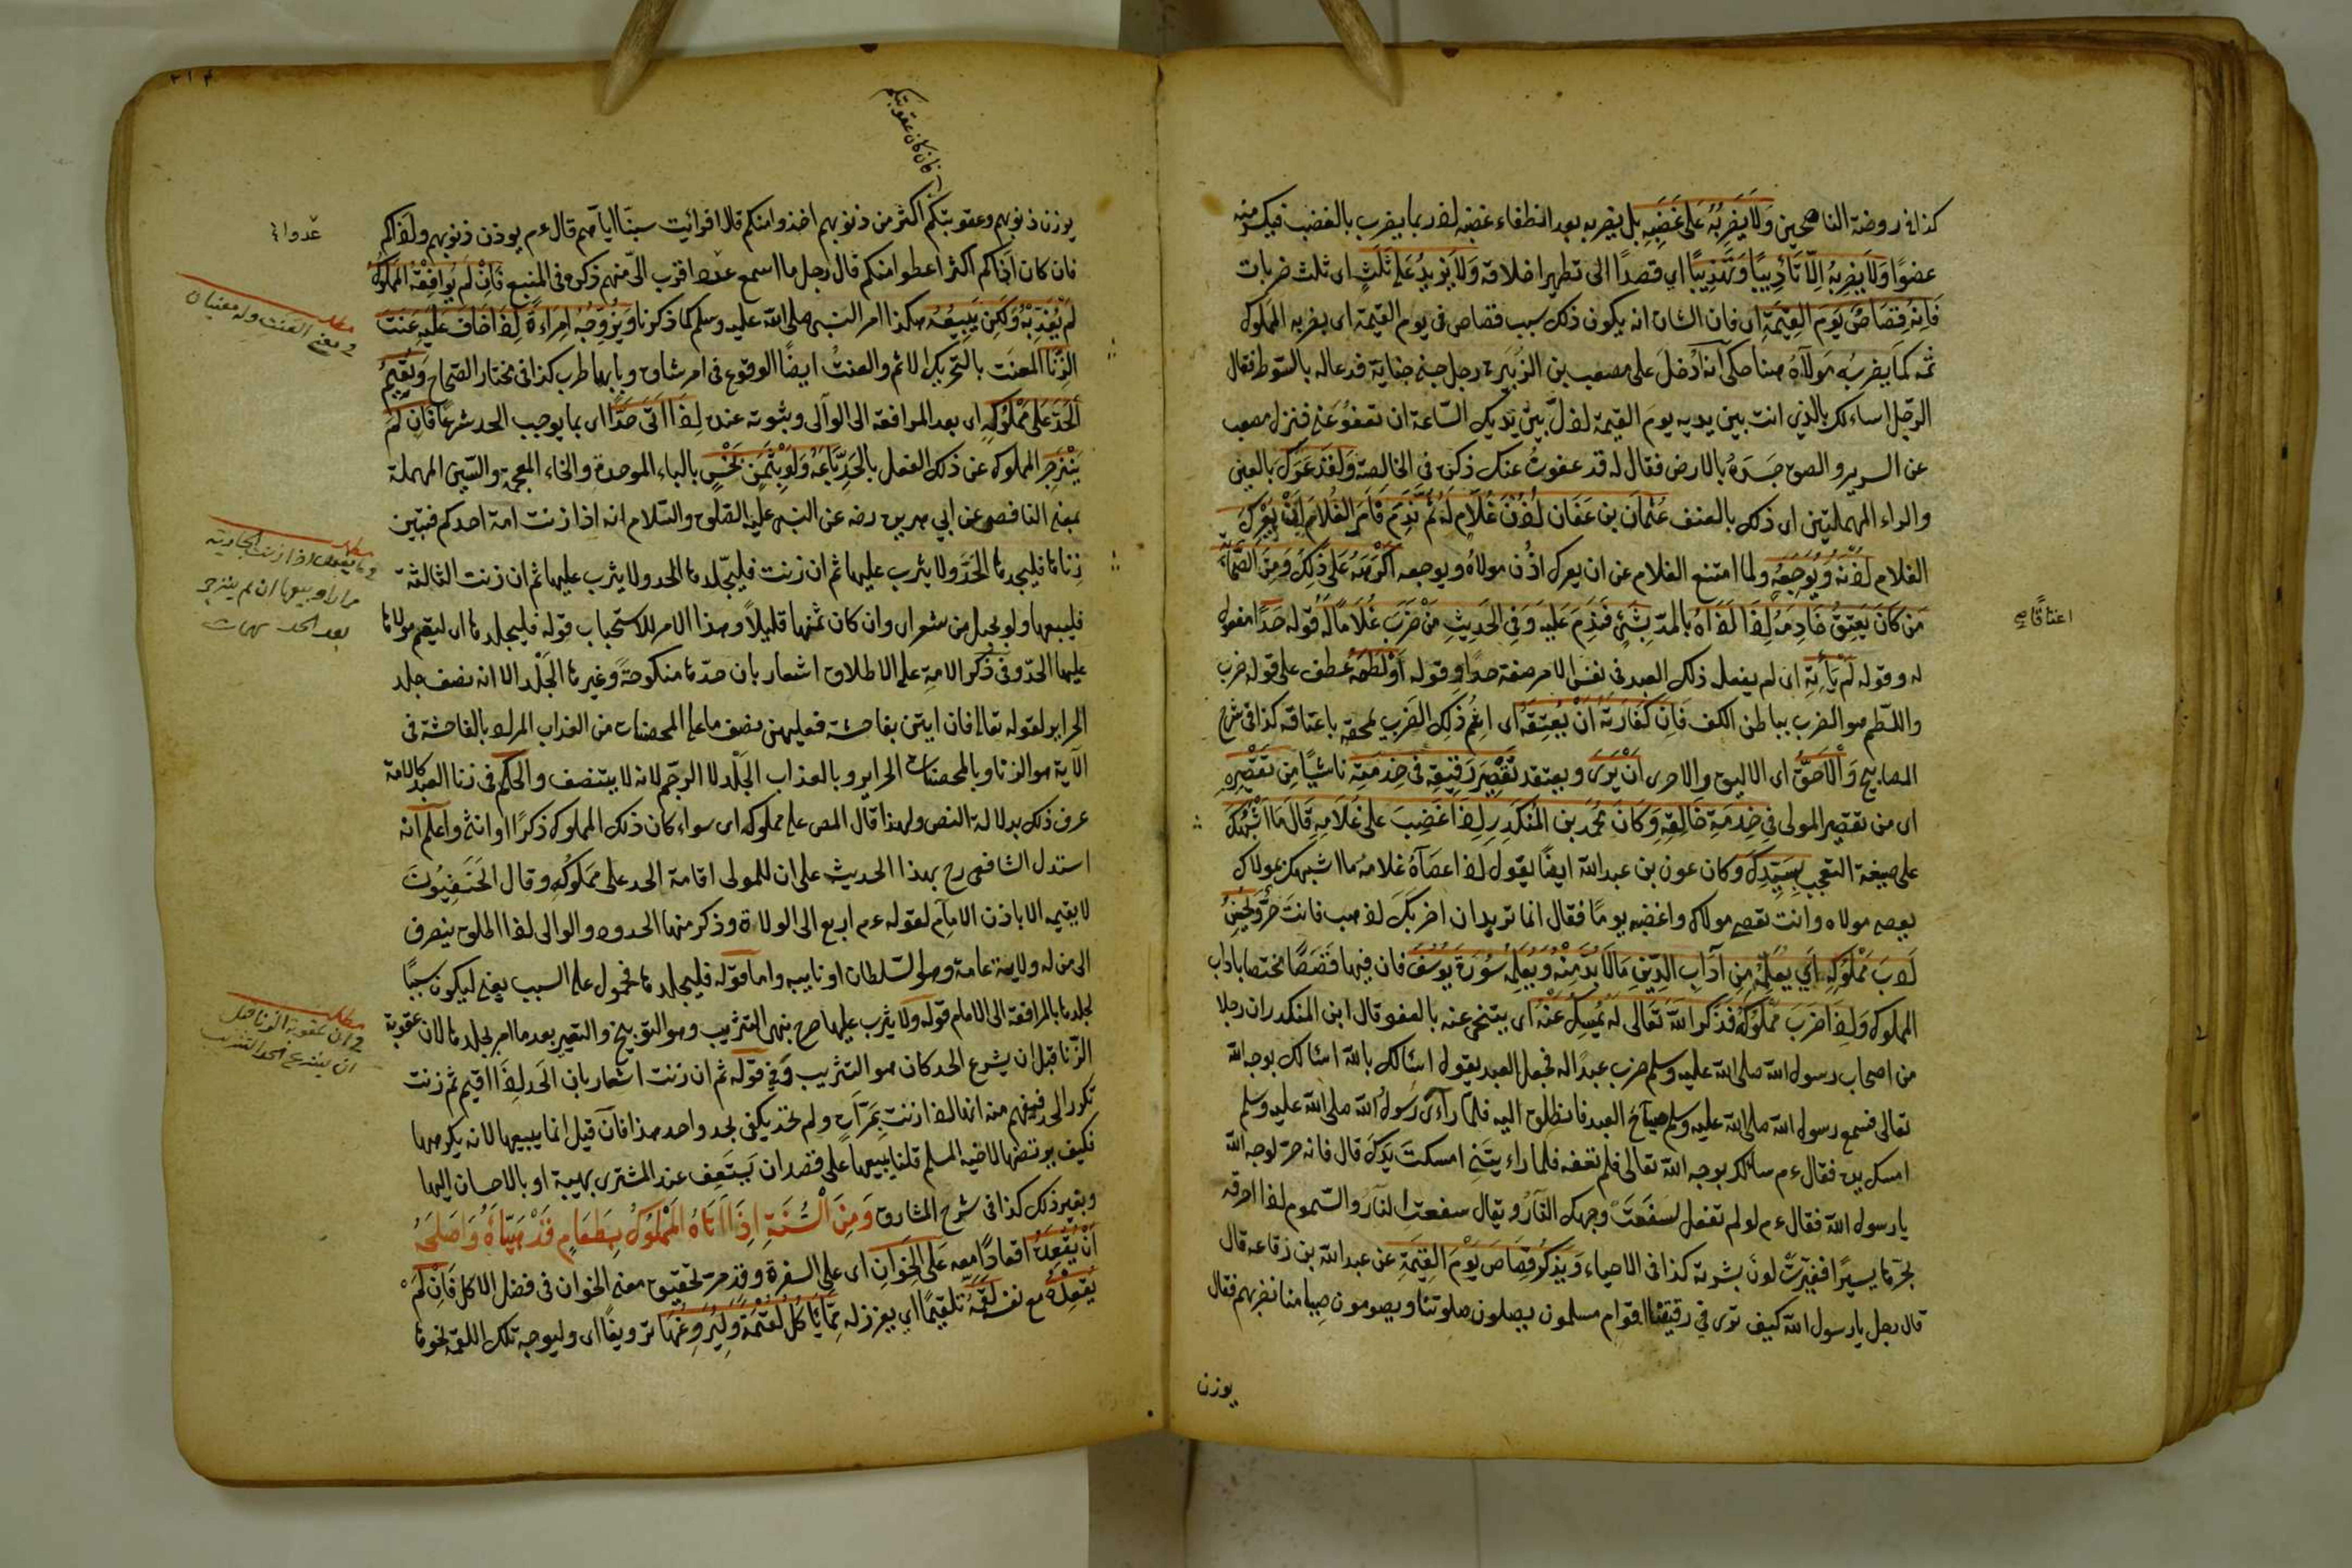 كذا في روضة الناصحين ولا يضربه على غضبه بل يضربه بعد انطفاء غضبه لانه ربما يضرب بالغضب فيكسر منه
عضوا ولا يضربه الا تأديبا وتهذيبا اي قصدا الى تطهير اخلاقه ولا يزيد على ثلث اى ثلث ضربات
فانه قصاص يوم القيمة اى فان الشان انه يكون ذلك سبب قصاص في يوم القيمة اى يضربه المملوك
ثمه كما يضربه مولاه هنا حكى انه ادخل على مصعب بن الزبير رجل جنى جناية فدعا له بالسوط فقال
الرجل اسائلك بالذي انت بين يديه يوم القيمة اذل بين يديك الساعة ان تعفو عني فنزل مصعب
عن السرير والصق خده بالارض فقال له قد عفوت عنك ذكره في الخالصة ولقد عرك بالعين
والراء المهملتين اى ذلك بالعنف عثمان بن عفان اذن غلام له ثم ندم فامر الغلام ان يعرك
الغلام اذنه ويوجعه ولما امتنع الغلام عن ان يعرك اذن مولاه ويوجعه اكرهه على ذلك ومن الصحابة
من كان يعتق خادمه اذا اذاه بالمد بشئ فندم عليه وفي الحديث من ضرب غلاما له قوله حدا مفعول
له وقوله لم يأته اى لم يفعل ذلك العبد في نفس الامر صفة حدا وقوله او لطمه عطف على قوله ضرب
واللطم هو الضرب بباطن الكف فان كفارته ان يعتقه اى اثم ذلك الضرب يمحقه باعتاقه كذا في شرح
المصابيح والاحق اى الاليق والاحرى ان يرى ويعتقد تقصير رقيقه في خدمته ناشيا من تقصيره
اى من تقصير المولى في خدمة خالقه وكان محمد بن المنكدر اذا غضب على غلامه قال ما اشبهك
على صيغة التعجب بسيدك وكان عون بن عبد الله ايضا يقول اذا عصاه غلامه ما اشبهك بمولاك
يعصى مولاه وانت تعصى مولاك واغضبه يوما فقال انما تريد ان اضربك اذهب فانت حر وليحسن
ادب مملوكه اي يعلمه من آداب الدين ما لا بد منه ويعلمه سورة يوسف فان فيها قصصا مختصا باداب
المملوك واذا ضرب مملوكه فذكر الله تعالى له يمسك عنه اى يتنحى عنه بالعفو قال ابن المنكدر ان رجلا
من اصحاب رسول الله صلى الله عليه وسلم ضرب عبدا له فجعل العبد يقول اسالك بالله اسالك بوجه الله
تعالى فسمع رسول الله صلى الله عليه وسلم صياح العبد فانطلق اليه فلما رآى رسول الله صلى الله عليه وسلم
امسك يده فقال ءم سالك بوجه الله تعالى فلم تعفه فلما رايتني امسكت يدك قال فانه حر لوجه الله
يا رسول الله فقال ءم لو لم تفعل لسفعت وجهك النار ويقال سفعت النار والسموم اذا احرقه
بحرها يسيرا فغيرت لون بشرته كذا في الاحياء ويذكر قصاص يوم القيمة عن عبد الله بن زقاعه قال
قال رجل يا رسول الله كيف ترى في رقيقنا اقوام مسلمون يصلون صلوتنا ويصومون صيامنا نضربهم فقال
يوزن
اعتاقا صح
٢١٤
فان كان عقوبتكم
يوزن ذنوبهم وعقوبتكم اكثر من ذنوبهم اخذوا منكم قال افرأيت سبنا اياهم قال ءم يوذن ذنوبهم واذاكم
فان كان اذاكم اكثر اعطوا منكم قال رجل ما اسمع عدوا اقرب الى منهم ذكره في المنبع فان لم يوافقه المملوك
لم يعذبه ولكن يبيعه هكذا امر النبى صلى الله عليه وسلم كما ذكرنا ويزوجه امراءة اذا خاف عليه عنت
الزنا العنت بالتحريك الاثم والعنت ايضا الوقوع في امر شاق وبابهما طرب كذا في مختار الصحاح ويقيم
الحد على مملوكه اى بعد المرافعة الى الوالى وثبوته عنده اذا اتى حدا اى بما يوجب الحد شرعا فان لم
ينزجر المملوك عن ذلك الفعل بالحد باعه ولو بثمن بخس بالباء الموحدة والخاء المعجمة والسين المهملة
بمعنى الناقص عن ابي هريرة رضه عن النبى عليه الصلوة والسلام انه اذا زنت امة احدكم فتبين
زناها فليجلدها الحد ولا يثرب عليها ثم ان زنت فليجلدها الحد ولا يثرب عليها ثم ان زنت الثالثة
فليبعها ولو بحبل من شعر اى وان كان ثمنها قليلا وهذا الامر للاستحباب قوله فليجلدها اى ليقم مولاها
عليها الحد وفي ذكر الامة على الاطلاق اشعار بان حدها منكوحة وغيرها الجلد الا انه نصف جلد
الحراير لقوله تعالى فان اتين بفاحشة فعليهن نصف ما على المحصنات من العذاب المراد بالفاحشة في
الآية هو الزنا وبالمحصنات الحراير وبالعذاب الجلد لا الرجم لانه لا يتنصف والحكم في زنا العبد كالامة
عرف ذلك بدلالة النص ولهذا قال المص على مملوكه اى سواء كان ذلك المملوك ذكرا او انثى واعلم انه
استدل الشافعى رح بهذا الحديث على ان للمولى اقامة الحد على مملوكه وقال الحنفيون
لا يقيمه الا باذن الامام لقوله ءم اربع الى الولاة وذكر منها الحدود والوالى اذا اطلق ينصرف
الى من له ولاية عامة وهو السلطان او نايبه واما قوله فليجلدها فمحمول على السبب يعنى ليكون سببا
لجلدها بالمرافعة الى الامام قوله ولا يثرب عليها صرح بنهى التثريب وهو التوبيخ والتعيير بعد ما امر بجلدها لان عقوبة
الزنا قبل ان يشرع الحد كان هو التثريب وفي قوله ثم ان زنت اشعار بان الحد اذا اقيم ثم زنت
تكرر الحد فيفهم منه انها اذا زنت بمرات ولم تحد يكفي بحد واحد هذا فان قيل انما يبيعها لانه يكرهها
فكيف يرتضيها لاخيه المسلم قلنا يبيعها على قصد ان يستعف عند المشترى بهيبة او بالاحسان اليها
وبغير ذلك كذا في شرح المشارق ومن السنة اذا اتاه المملوك بطعام قد هيأه واصلحه
ان يقعده اقعادا معه على الخوان اى على السفرة وقد مر تحقيق معنى الخوان في فضل الاكل فان لم
يقعده مع نفسه لقمه تلقيما اي يعزز له مما ياكل لقمة وليروغها ترويغا اى وليوجه تلك اللقمة نحوها
عدوا
مطلب
في معنى العنت وله معنيان
مطلب
فيما يفعل اذا زنت الجارية
مرارا وبيعها ان لم ينزجر
بعد الحد
مطلب
في ان عقوبة الزنا قبل
ان يشرع الحد التثريب